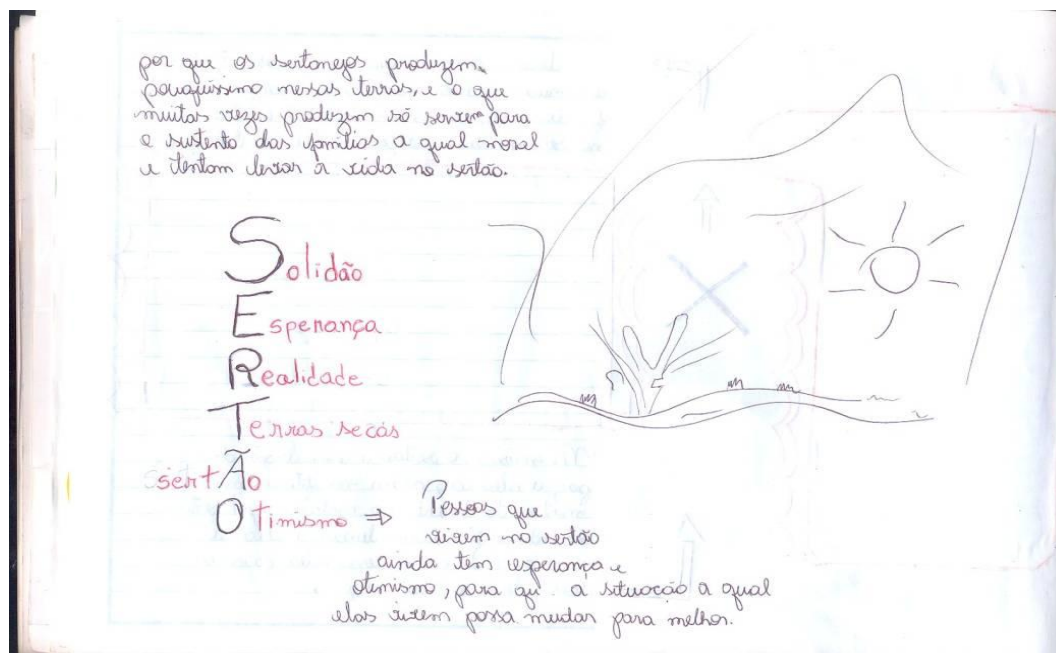 por que os sertanejos produzem
pouquíssimo nessas terras, e o que
muitas vezes produzem só servem para
o sustento das famílias a qual moral
e tentam levar a vida no sertão.
Solidão
Esperança
Realidade
Terras secas
sertÃo
Otimismo ⇒ Pessoas que
vivem no sertão
ainda tem esperança e
otimismo, para qu a situação a qual
elas vivem possa mudar para melhor.